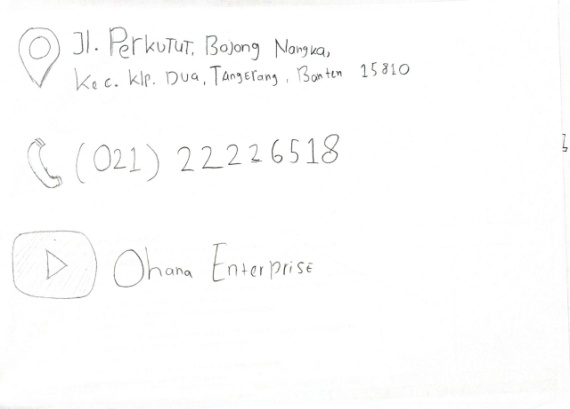 Jl. Perkutut, Bojong Nangka,
Kec. Klp. Dua, Tangerang, Banten 15810
(021) 22226518
Ohana Enterprise